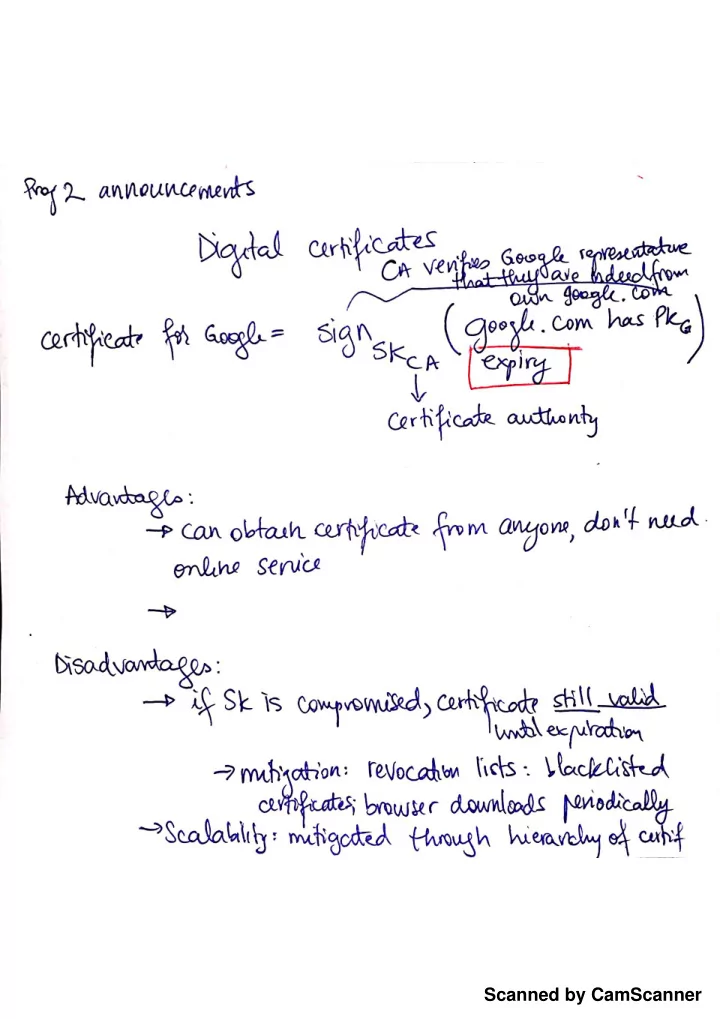 Proj 2 announcements
Digital certificates
CA verifies Google representative
that they are indeed from
own google.com
certificate for Google = sign SK CA (google.com has PK G)
expiry
↓
Certificate authority
Advantages:
→ can obtain certificate from anyone, don't need
online service
→
Disadvantages:
→ if SK is compromised, certificate still valid
until expiration
→ mitigation: revocation lists: blacklisted
certificates; browser downloads periodically
→ Scalability: mitigated through hierarchy of certif
Scanned by CamScanner